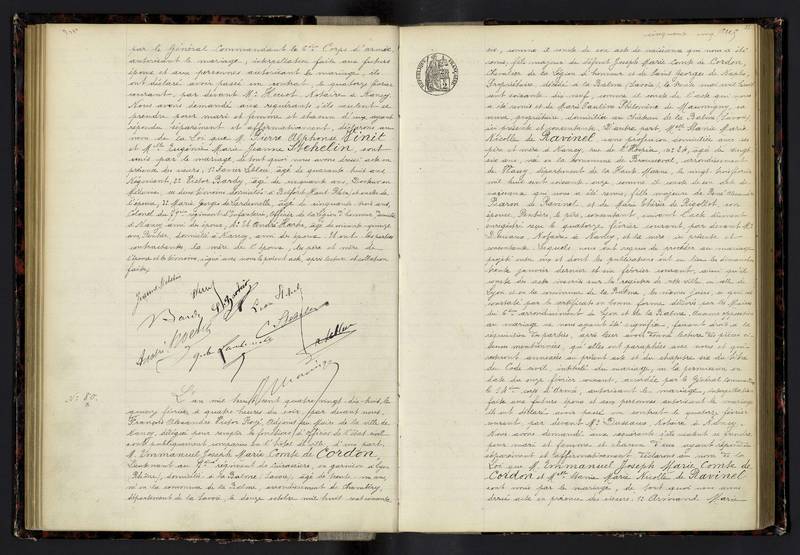 par le Général Commandant le 6me Corps d'armée,
autorisant le mariage, interpellation faite aux futurs
époux et aux personnes autorisant le mariage, ils
ont déclaré avoir passé un contrat le quatorze février
courant, par devant Me Notaire à Nancy.
Nous avons demandé aux requérants s'ils veulent se
prendre pour mari et femme et chacun d'eux ayant
répondu séparément et affirmativement, déclarons au
nom de la Loi que M. Pierre Alphonse
et Melle Eugénie Marie Jeanne Stehelin, sont
unis par le mariage, de tout quoi nous avons dressé acte en
présence des sieurs, 1° Xavier âgé de quarante huit ans
Négociant, 2° Victor Bardy, âgé de soixante ans, Docteur en
Médecine, ces deux témoins domiciliés à Belfort, Haut Rhin,
l'épouse, 3° Marie Georges âgé de cinquante trois ans,
Colonel du 79me régiment d'Infanterie, Officier de la Légion d'honneur, domicilié
à Nancy, ami du époux, 4° et André
ans, Rentier, domicilié à Nancy, ami de l'époux. Et ont les parties
contractantes, la mère de l'époux, les père et mère de
l'épouse et les témoins, signé avec nous le présent acte, après lecture et collation
faites,
Bardy
N° 80.
L'an mil huit cent quatre vingt dix-huit, le
quinze février, à quatre heures du soir, par devant nous,
François Alexandre Victor Adjoint au Maire de la ville de
Nancy, délégué pour remplir les fonctions d'Officier de l'état civil
sont publiquement comparus à l'hôtel de ville, d'une part,
M. Emmanuel Joseph Marie Comte de Cordon,
Lieutenant au 7me régiment de Cuirassiers, en garnison à Lyon
(Rhône), domicilié à la Balme (Savoie), âgé de trente ans,
né en la commune de la Balme, arrondissement de Chambéry,
département de la Savoie, le douze octobre mil huit cent soixante
six, comme il conste de son acte de naissance qui nous a été
remis, fils majeur de défunt Joseph Marie Comte de Cordon,
Chevalier de la Légion d'honneur et de Saint Georges de Naples,
Propriétaire, décédé à la Balme (Savoie), le treize août mil huit
cent soixante dix neuf, comme il conste de l'acte qui nous
a été remis et de Marie Pauline Philomène de sa
veuve, propriétaire, domiciliée au Château de la Balme (Savoie)
ici présente et consentante. D'autre part, Melle Marie
Nicolle de Ravinel, sans profession, domiciliée avec ses
père et mère à Nancy, rue de N° 20, âgée de vingt
six ans, née en la commune de arrondissement
de département de la Haute Marne, le vingt trois février
mil huit cent soixante onze comme il conste de son acte de
naissance, qui nous a été remis, fille majeure de René
Baron de Ravinel, et de Marie de Rigollot, son
épouse, Rentiers, le père, consentant, suivant l'acte dûment
enregistré reçu le quatorze février courant, par devant Me
Notaire à Nancy, et la mère ici présente et
consentante. Lesquels nous ont requis de procéder au mariage
projeté entre eux et dont les publications ont eu lieu les dimanches
trente janvier dernier et six février courant, ainsi qu'il
conste des actes inscrits sur les registres de cette ville, en celle de
Lyon et en la commune de la Balme, les mêmes jours, ce qui est
constaté par les certificats en bonne forme délivrés par les Maires
du 6me arrondissement de Lyon et de la Balme. Aucune opposition
au mariage ne nous ayant été signifiée, faisant droit à la
réquisition des parties, après leur avoir donné lecture des pièces ci-
dessus mentionnées, qu'elles ont paraphées avec nous et qui
resteront annexées au présent acte et du chapitre six du titre
du Code civil, intitulé du mariage, vu la permission en
date du onze février courant, accordée par le Général Commandant
le 14me corps d'Armée, autorisant le mariage, interpellation
faite aux futurs époux et aux personnes autorisant le mariage
ils ont déclaré avoir passé un contrat le quatorze février
courant, par devant Me Notaire à Nancy.
Nous avons demandé aux requérants s'ils veulent se prendre
pour mari et femme et chacun d'eux ayant répondu
séparément et affirmativement déclarons au nom de la
Loi que M. Emmanuel Joseph Marie Comte de
Cordon et Melle Marie Nicolle de Ravinel
sont unis par le mariage, de tout quoi nous avons
dressé acte en présence des sieurs, 1° Armand Marie